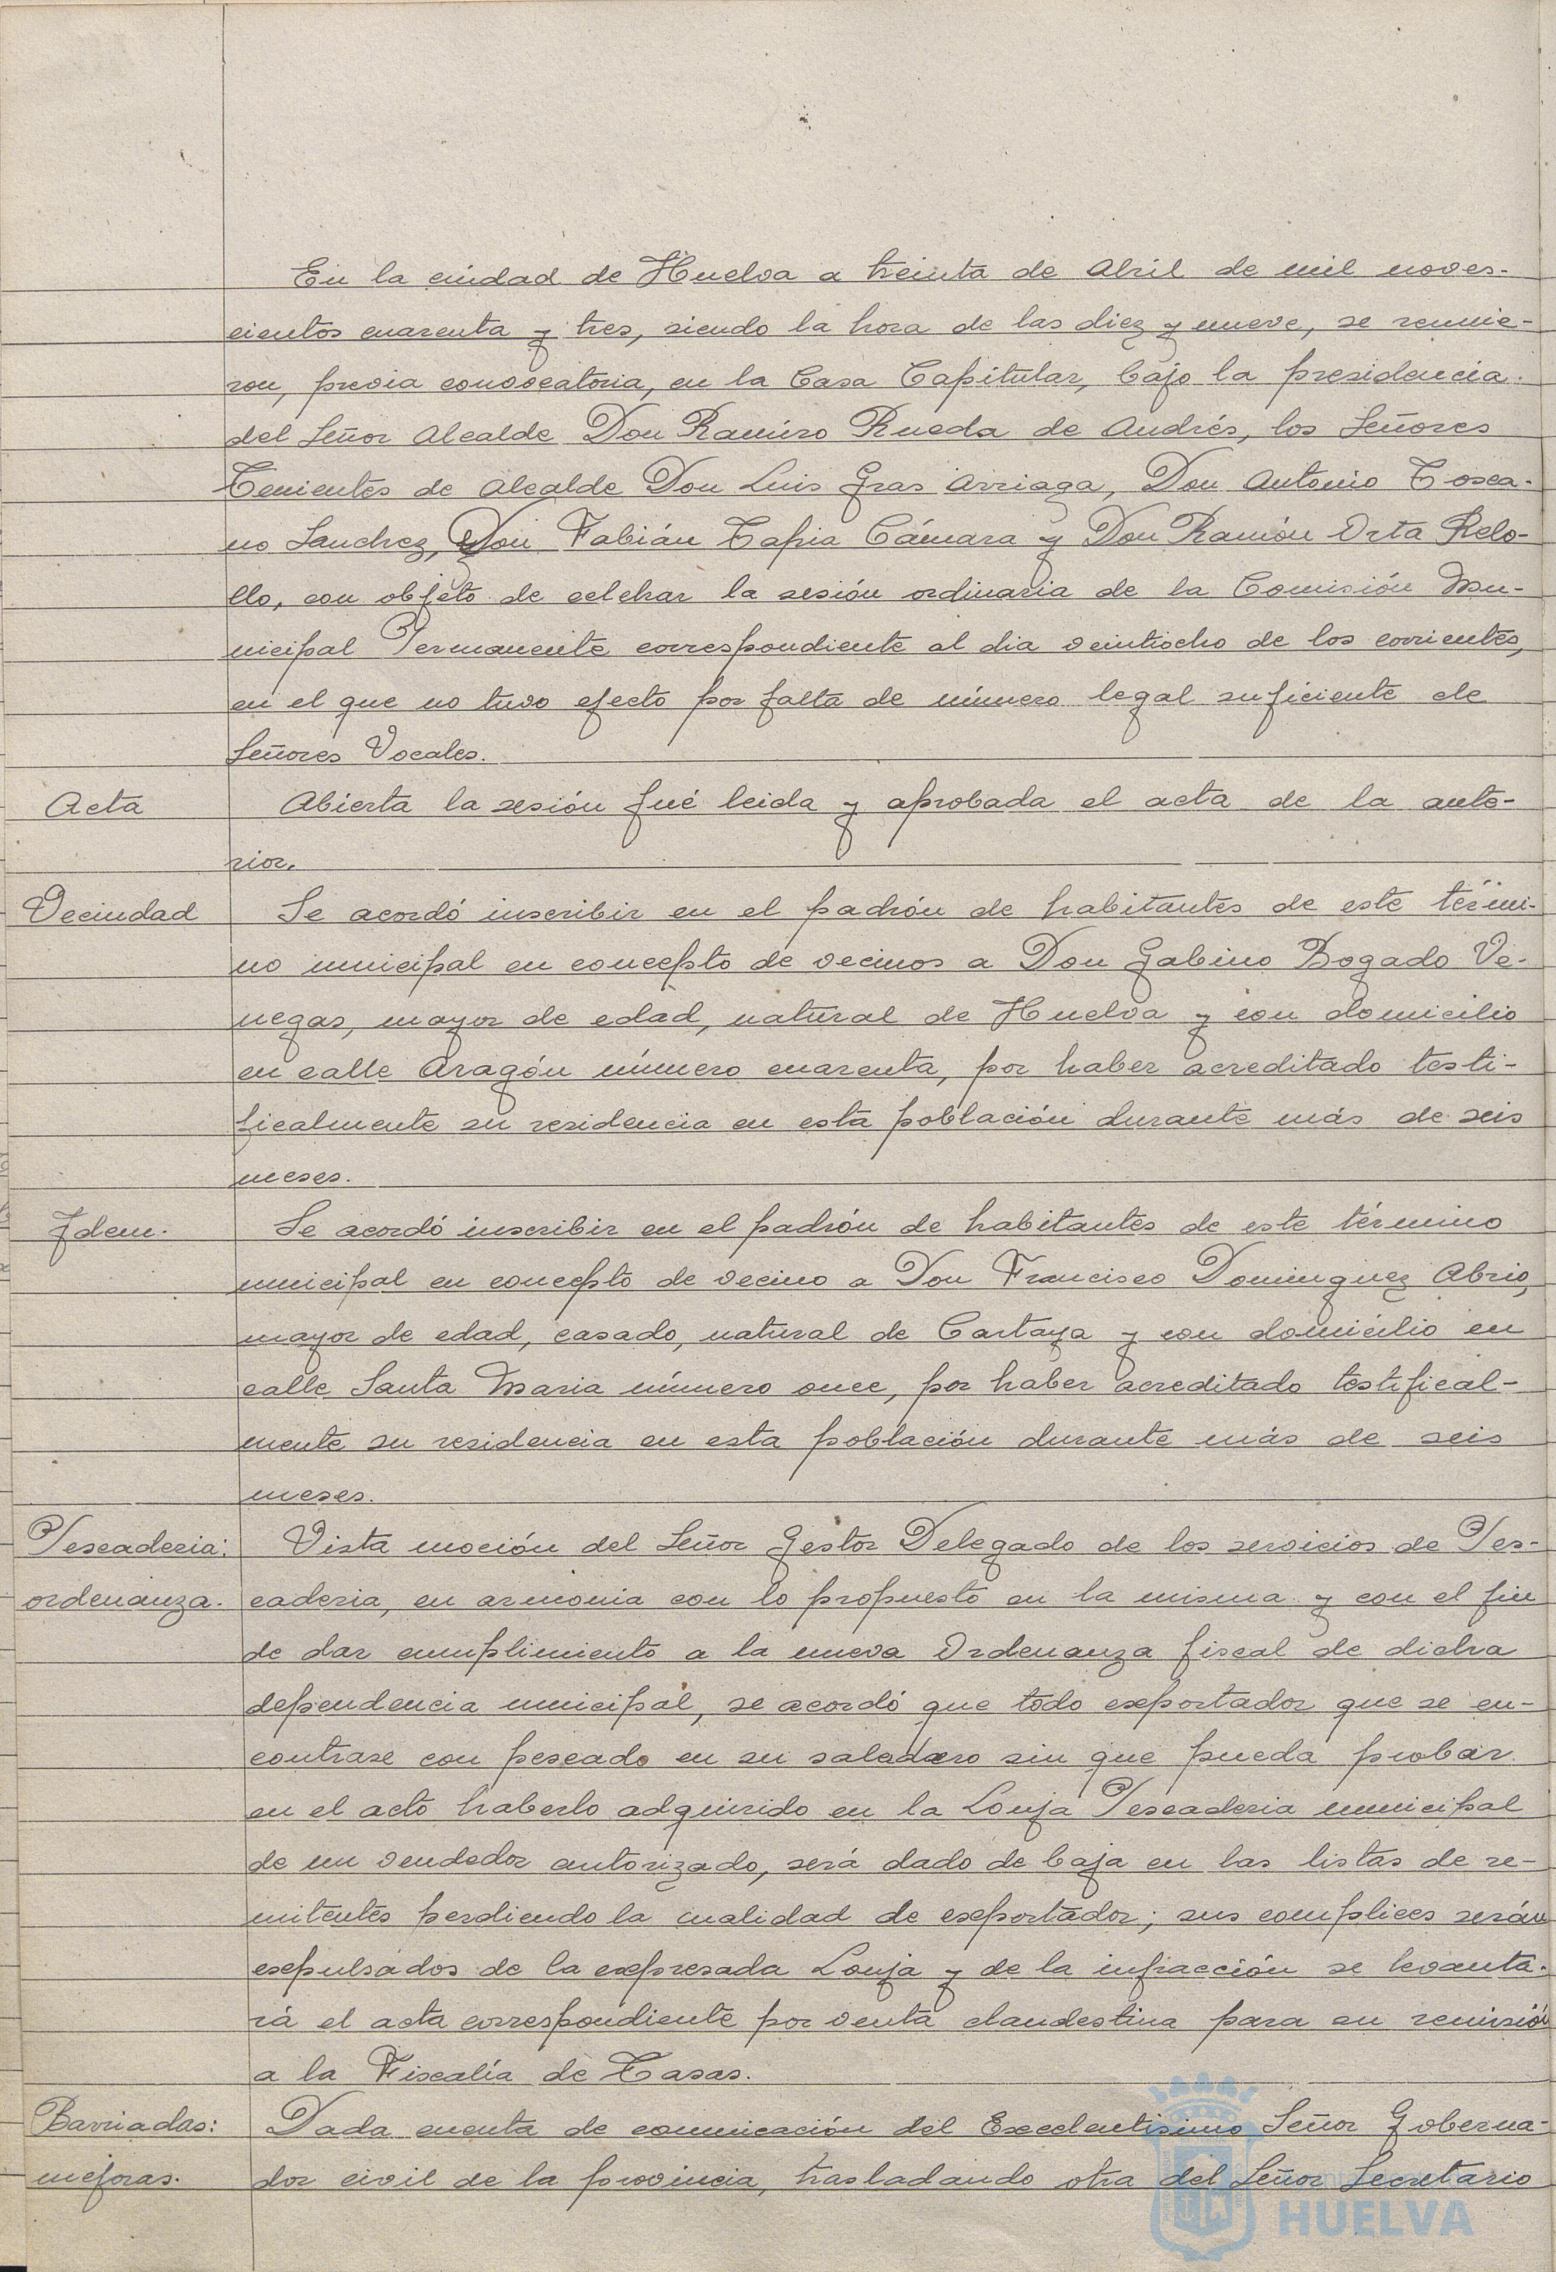 En la ciudad de Huelva a treinta de Abril de mil noves-
cientos cuarenta y tres, siendo la hora de las diez y nueve, se reunie-
ron, previa convocatoria, en la Casa Capitular, bajo la presidencia
del Señor Alcalde Don Ramiro Rueda de Andrés, los Señores
Tenientes de Alcalde Don Luis Gras Arriaga, Don Antonio Tosca-
no Sanchez, Don Fabián Tapia Cámara y Don Ramón Orta Rebo-
llo, con objeto de celebrar la sesión ordinaria de la Comisión Mu-
nicipal Permanente correspondiente al dia veintiocho de los corrientes,
en el que no tuvo efecto por falta de número legal suficiente de
Señores Vocales.
Acta Abierta la sesión fué leida y aprobada el acta de la ante-
rior.
Vecindad Se acordó inscribir en el padrón de habitantes de este térmi-
no municipal en concepto de vecinos a Don Gabino Bogado Ve-
negas, mayor de edad, natural de Huelva y con domicilio
en calle Aragón número cuarenta, por haber acreditado testi-
ficalmente su residencia en esta población durante más de seis
meses.
Idem. Se acordó inscribir en el padrón de habitantes de este término
municipal en concepto de vecino a Don Francisco Dominguez Abrio,
mayor de edad, casado, natural de Cartaya y con domicilio en
calle Santa Maria número once, por haber acreditado testifical-
mente su residencia en esta población durante más de seis
meses.
Pescaderia: Vista moción del Señor Gestor Delegado de los servicios de Pes-
ordenanza. caderia, en armonia con lo propuesto en la misma y con el fin
de dar cumplimiento a la nueva Ordenanza fiscal de dicha
dependencia municipal, se acordó que todo exportador que se en-
contrase con pescado en su saladero sin que pueda probar
en el acto haberlo adquirido en la Lonja Pescaderia municipal
de un vendedor autorizado, será dado de baja en las listas de re-
mitentes perdiendo la cualidad de exportador; sus complices serán
expulsados de la expresada Lonja y de la infracción se levanta-
rá el acta correspondiente por venta clandestina para su remisión
a la Fiscalía de Tasas.
Barriadas: Dada cuenta de comunicación del Excelentisimo Señor Goberna-
mejoras. dor civil de la provincia, trasladando otra del Señor Secretario
HUELVA